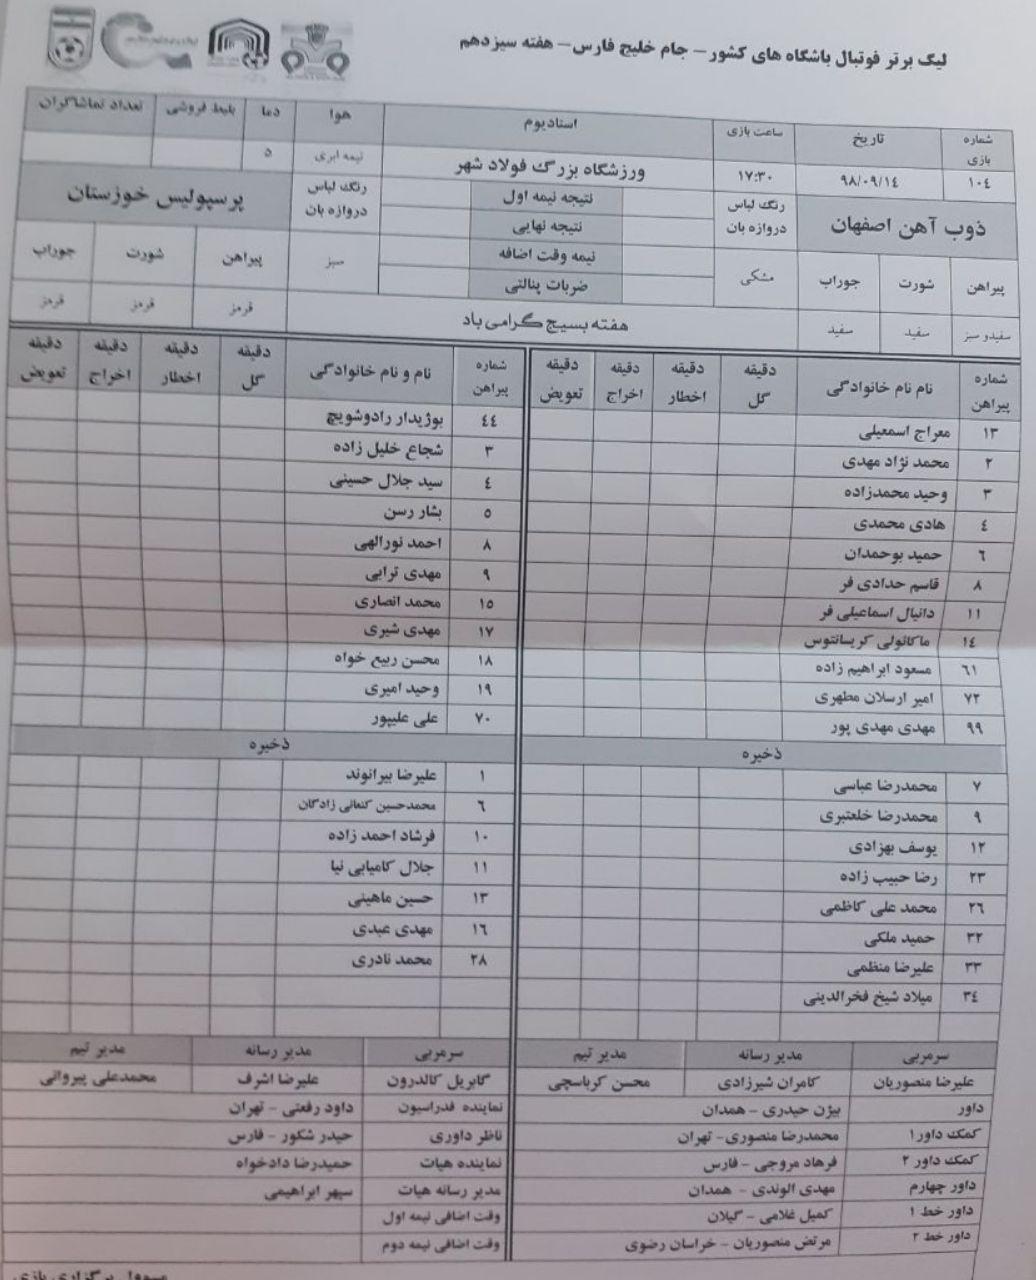 لیگ برتر فوتبال باشگاه های کشور – جام خلیج فارس – هفته سیزدهم
شماره بازی | تاریخ | ساعت بازی | استادیوم | هوا | دما | بلیط فروشی | تعداد تماشاگران
۱۰۴ | ۹۸/۰۹/۱۴ | ۱۷:۳۰ | ورزشگاه بزرگ فولاد شهر | نیمه ابری | ۵
ذوب آهن اصفهان | رنگ لباس دروازه بان | نتیجه نیمه اول | رنگ لباس دروازه بان | پرسپولیس خوزستان
نتیجه نهایی
پیراهن | شورت | جوراب | مشکی | نیمه وقت اضافه | سبز | پیراهن | شورت | جوراب
ضربات پنالتی
سفیدو سبز | سفید | سفید | هفته بسیج گرامی باد | قرمز | قرمز | قرمز
شماره پیراهن | نام نام خانوادگی | دقیقه گل | دقیقه اخطار | دقیقه اخراج | دقیقه تعویض | شماره پیراهن | نام و نام خانوادگی | دقیقه گل | دقیقه اخطار | دقیقه اخراج | دقیقه تعویض
۱۳ | معراج اسمعیلی | ۴۴ | بوژیدار رادوشویچ
۲ | محمد نژاد مهدی | ۳ | شجاع خلیل زاده
۳ | وحید محمدزاده | ۴ | سید جلال حسینی
۴ | هادی محمدی | ۵ | بشار رسن
۶ | حمید بوحمدان | ۸ | احمد نورالهی
۸ | قاسم حدادی فر | ۹ | مهدی ترابی
۱۱ | دانیال اسماعیلی فر | ۱۵ | محمد انصاری
۱۴ | ماکائولی کریسانتوس | ۱۷ | مهدی شیری
۶۱ | مسعود ابراهیم زاده | ۱۸ | محسن ربیع خواه
۷۲ | امیر ارسلان مطهری | ۱۹ | وحید امیری
۹۹ | مهدی مهدی پور | ۷۰ | علی علیپور
ذخیره | ذخیره
۷ | محمدرضا عباسی | ۱ | علیرضا بیرانوند
۹ | محمدرضا خلعتبری | ۶ | محمدحسین کنعانی زادگان
۱۲ | یوسف بهزادی | ۱۰ | فرشاد احمد زاده
۲۳ | رضا حبیب زاده | ۱۱ | جلال کامیابی نیا
۲۶ | محمد علی کاظمی | ۱۳ | حسین ماهینی
۳۲ | حمید ملکی | ۱۶ | مهدی عبدی
۳۳ | علیرضا منظمی | ۲۸ | محمد نادری
۳۴ | میلاد شیخ فخرالدینی
سرمربی | مدیر رسانه | مدیر تیم | سرمربی | مدیر رسانه | مدیر تیم
علیرضا منصوریان | کامران شیرزادی | محسن کرباسچی | گابریل کالدرون | علیرضا اشرف | محمدعلی پیروانی
داور | بیژن حیدری – همدان | نماینده فدراسیون | داود رفعتی – تهران
کمک داور ۱ | محمدرضا منصوری – تهران | ناظر داوری | حیدر شکور – فارس
کمک داور ۲ | فرهاد مروجی – فارس | نماینده هیات | حمیدرضا دادخواه
داور چهارم | مهدی الوندی – همدان | مدیر رسانه هیات | سپهر ابراهیمی
داور خط ۱ | کمیل غلامی – گیلان | وقت اضافی نیمه اول
داور خط ۲ | مرتض منصوریان – خراسان رضوی | وقت اضافی نیمه دوم
مسوول برگزاری بازی